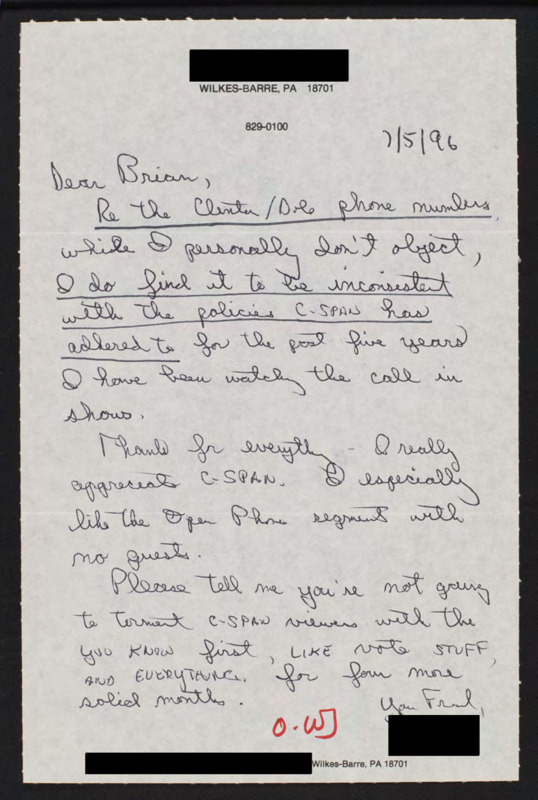 WILKES-BARRE, PA 18701
829-0100
7/5/96
Dear Brian,
Re the Clinton/Dole phone numbers,
while I personally don't object,
I do find it to be inconsistent
with the policies C-SPAN has
adhered to for the past five years
I have been watching the call in
shows.
Thanks for everything - I really
appreciate C-SPAN. I especially
like the Open Phone segment with
no guests.
Please tell me you're not going
to torment C-SPAN viewers with the
YOU KNOW first, LIKE vote STUFF,
AND EVERYTHING. for four more
solid months.
Your Friend,
Wilkes-Barre, PA 18701